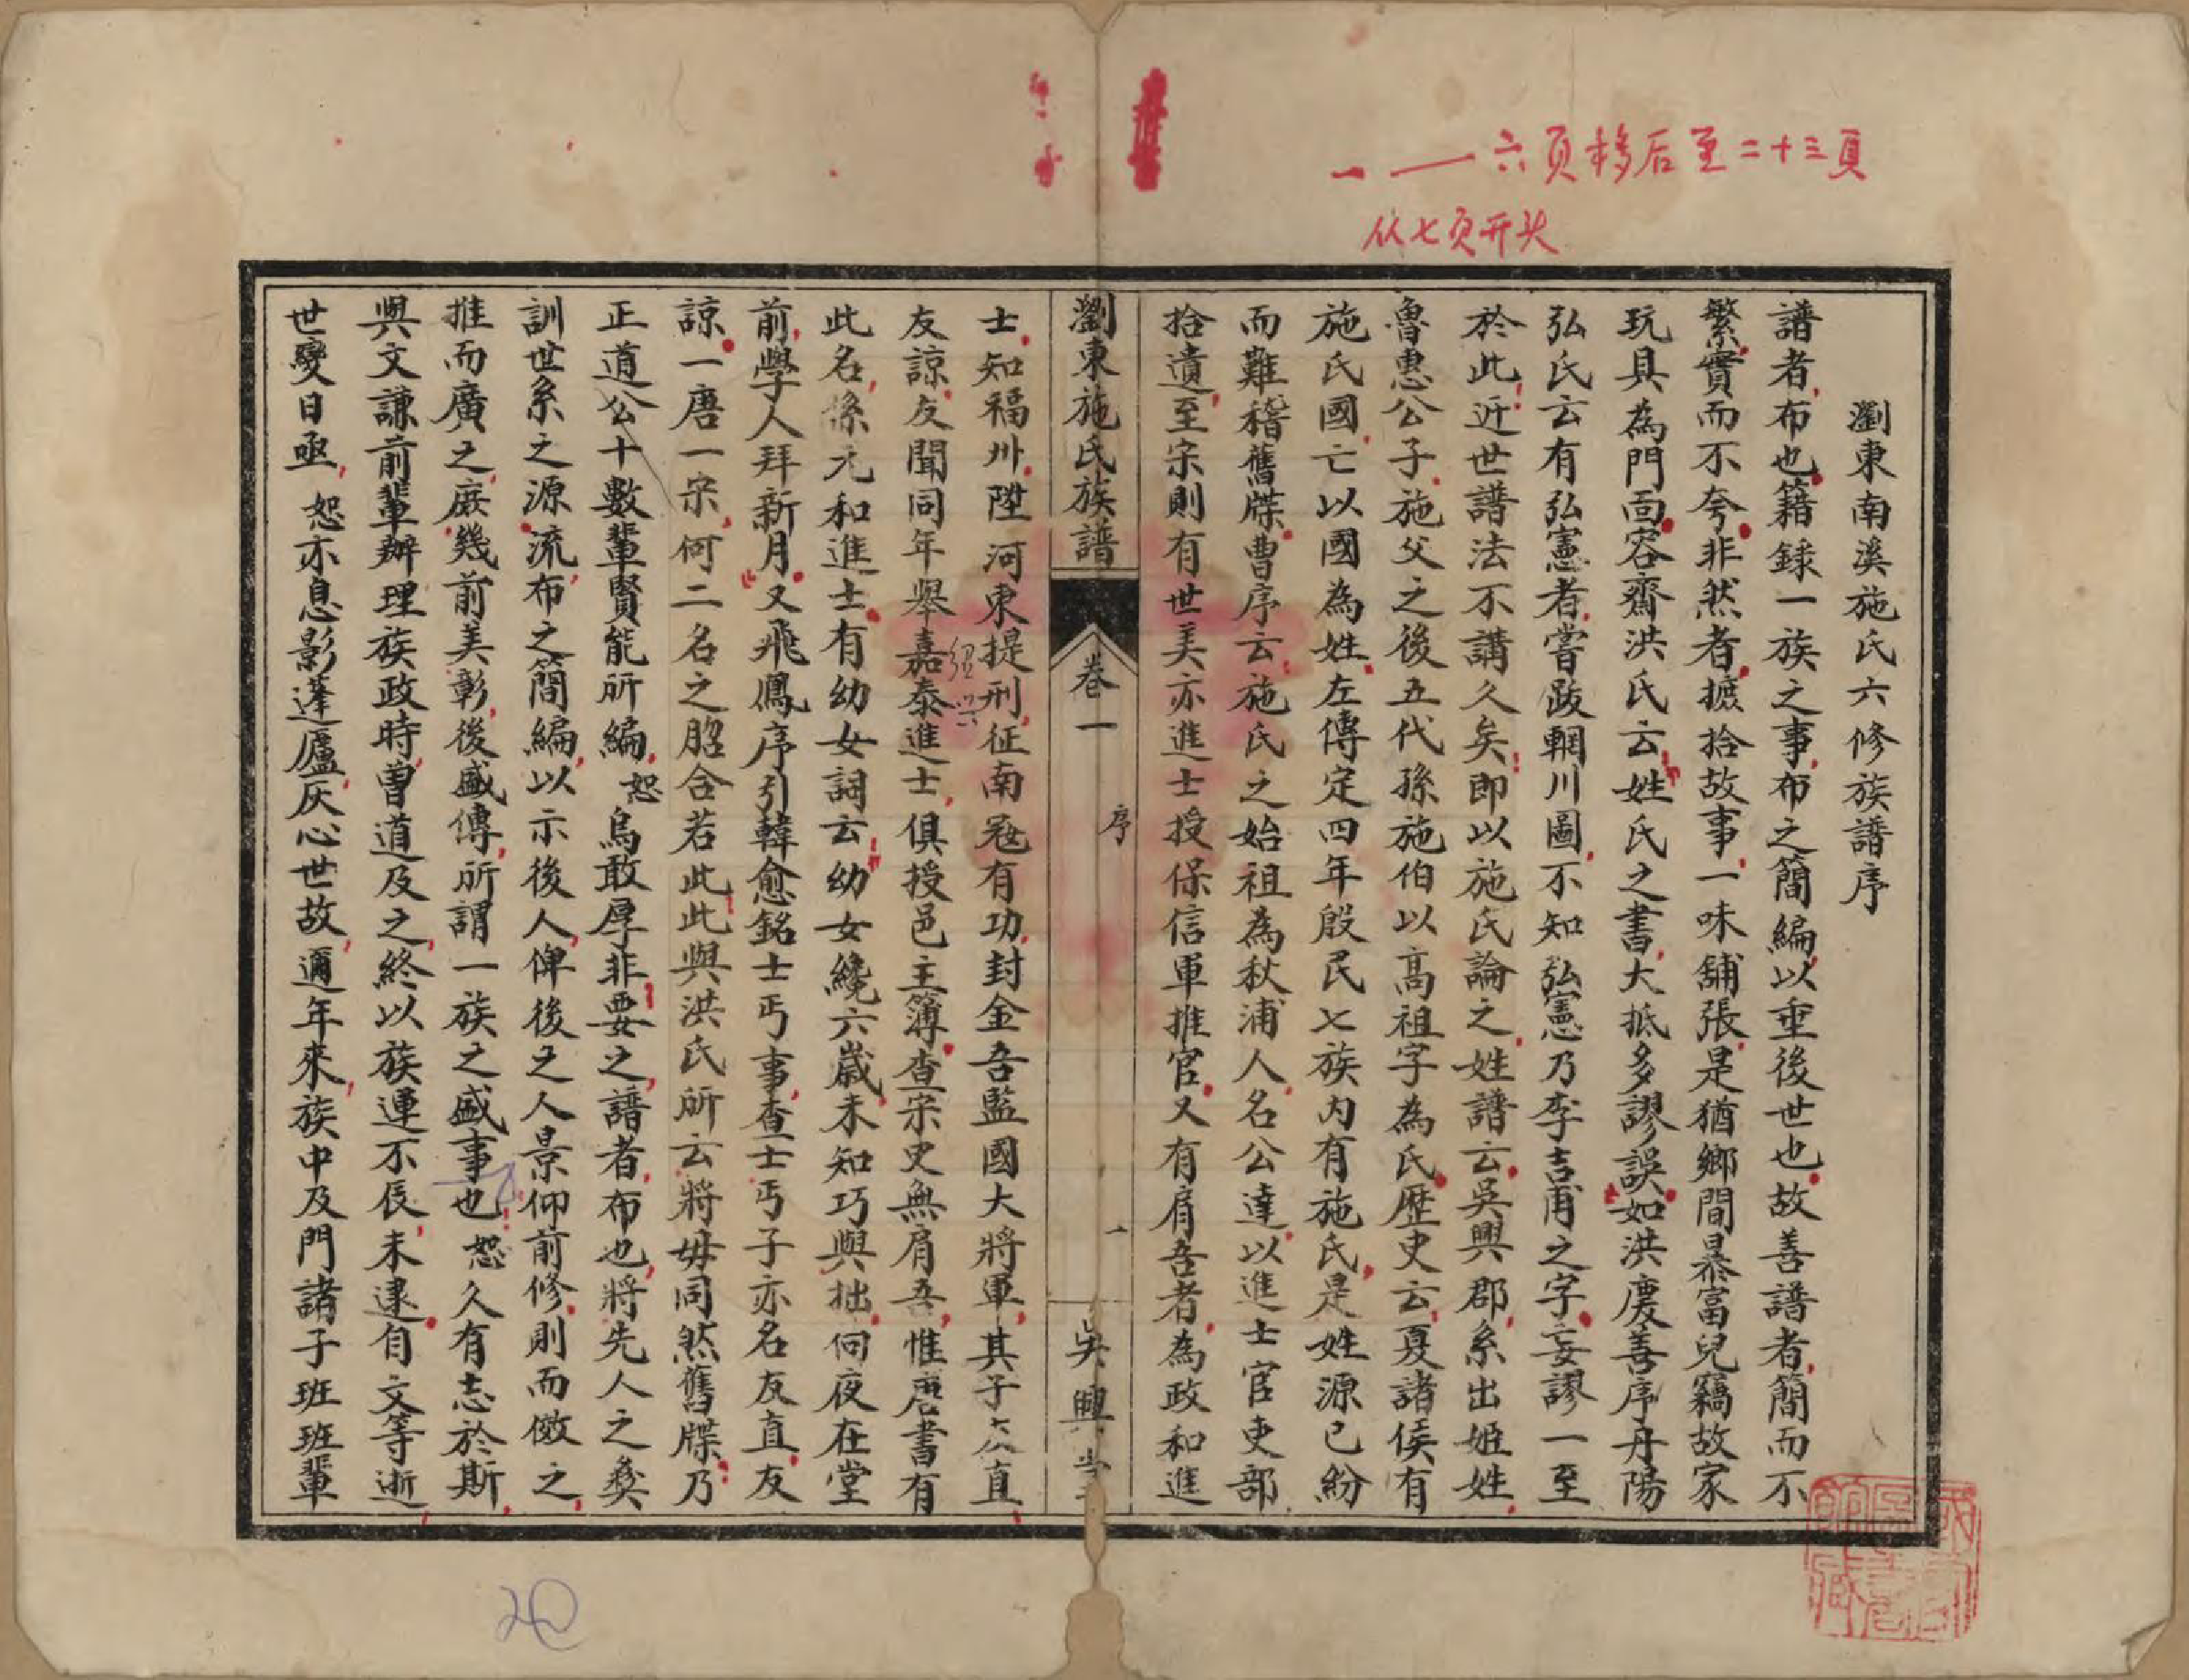 一——六頁移后至二十三頁
从七页开头
瀏東南溪施氏六修族譜序
譜者布也籍録一族之事布之簡編以垂後世也故善譜者簡而不
繁實而不夸非然者摭拾故事一味舖張是猶鄉間暴富兒竊故家
玩具為門面容齋洪氏云姓氏之書大抵多謬誤如洪慶善序丹陽
弘氏云有弘憲者嘗跋輞川圖不知弘憲乃李吉甫之字妄謬一至
於此近世譜法不講久矣即以施氏論之姓譜云吳興郡系出姬姓
魯惠公子施父之後五代孫施伯以高祖字為氏歷史云夏諸侯有
施氏國亡以國為姓左傳定四年殷民七族内有施氏是姓源已紛
而難稽舊牒曹序云施氏之始祖為秋浦人名公達以進士官吏部
拾遺至宗則有世美亦進士授保信軍推官又有肩吾者為政和進
瀏東施氏族譜
卷一
序
一
吳興堂
士知福州陞河東提刑征南冦有功封金吾監國大將軍其子友直
友諒友聞同年舉嘉泰進士俱授邑主簿查宋史無肩吾惟唐書有
紹興
此名係元和進士有幼女詞云幼女纔六歲未知巧與拙向夜在堂
前學人拜新月又飛鳳序引韓愈銘士丐事查士丐子亦名友直友
諒一唐一宋何二名之脗合若此此與洪氏所云將毋同然舊牒乃
正道公十數輩賢能所編恕烏敢厚非要之譜者布也將先人之彝
訓世系之源流布之簡編以示後人俾後之人景仰前修則而傚之
推而廣之庶幾前美彰後盛傳所謂一族之盛事也恕久有志於斯
與文謙前輩辦理族政時曾道及之終以族運不辰未逮自文等逝
世變日亟恕亦息影蓬廬灰心世故邇年來族中及門諸子班班輩
20